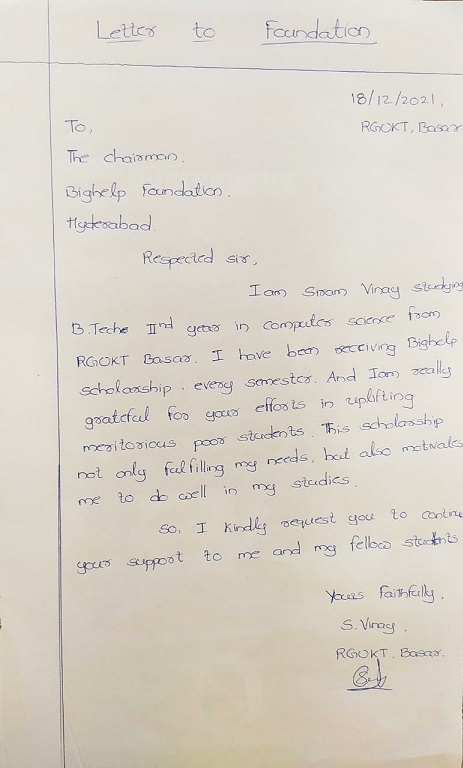 Letter to Foundation
18/12/2021,
RGUKT, Basar
To,
The chairman,
Bighelp Foundation.
Hyderabad.
Respected sir,
I am Siram Vinay studying
B.Tech IInd year in computer science from
RGUKT Basar. I have been receiving Bighelp
scholarship, every semester. And I am really
grateful for your efforts in uplifting
meritorious poor students. This scholarship
not only fulfilling my needs, but also motivates
me to do well in my studies.
So, I kindly request you to continue
your support to me and my fellow students
Yours Faithfully,
S. Vinay.
RGUKT, Basar.